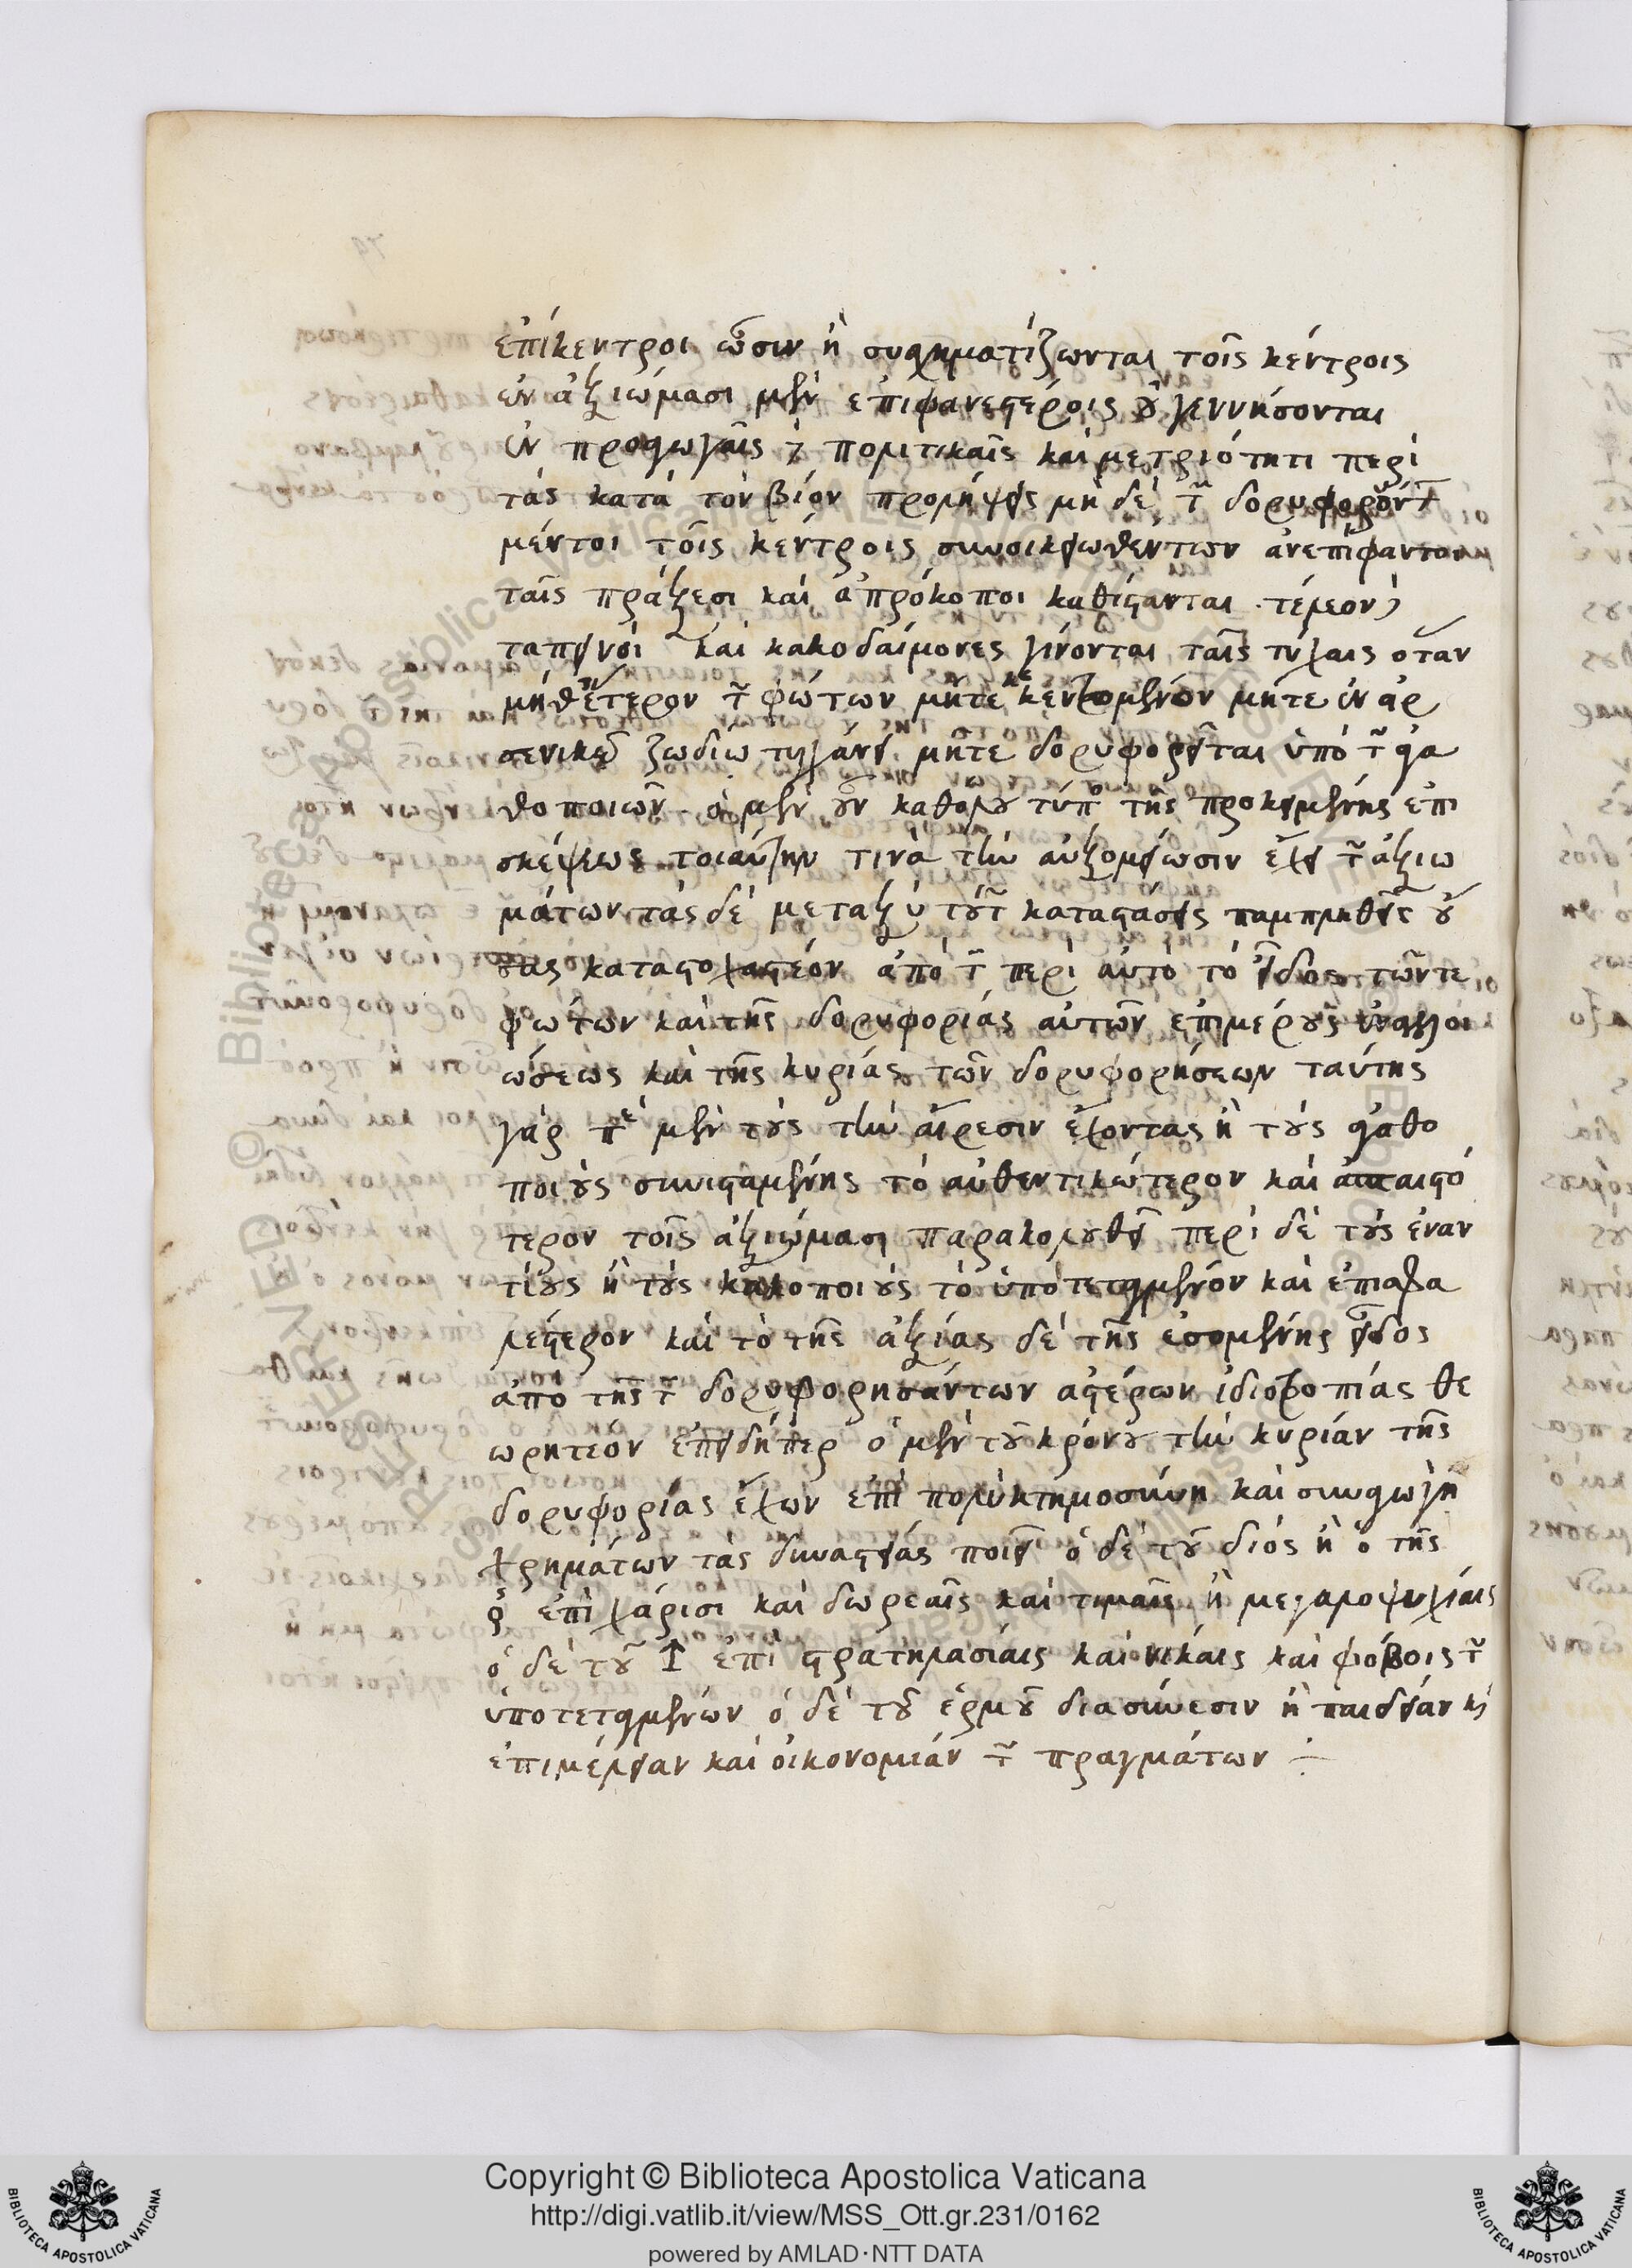 ἐπίκεντροι ὦσιν ἢ συσχηματίζωνται τοῖς κέντροις
ἐν ἀξιώμασι μὲν ἐπιφανεστέροις οὐ γεννήσονται
ἐν προαγωγαῖς πολιτικαῖς καὶ μετριότητι περὶ
τὰς κατὰ τὸν βίον προλήψεις μὴ δὲ τῶν δορυφορούντων
μέντοι τοῖς κέντροις συνοικειωθέντων ἀνεπίφαντοι
ταῖς πράξεσι καὶ ἀπρόκοποι καθίστανται τέλεον
ταπεινοὶ καὶ κακοδαίμονες γίνονται ταῖς τύχαις ὅταν
μηθέτερον τῶν φώτων μήτε κεκεντρωμένον μήτε ἐν ἀρ
σενικῷ ζωδίῳ τυγχάνει μήτε δορυφορεῖται ὑπὸ τῶν ἀγα
θοποιῶν ὁ μὲν οὖν καθόλου τύπος τῆς προκειμένης ἐπι
σκέψεως τοιαύτην τινὰ τὴν αὐξομείωσιν ἔχει τῶν ἀξιω
μάτων τὰς δὲ μεταξὺ τούτων καταστάσεις παμπληθεῖς οὔ
σας καταστοχαστέον ἀπὸ τῶν περὶ αὐτὸ τὸ εἶδος τῶν τε
φώτων καὶ τῆς δορυφορίας αὐτῶν ἐπιμέρους ἐναλλοι
ώσεως καὶ τῆς κυρίας τῶν δορυφορήσεων ταύτης
γὰρ περὶ μὲν τοὺς τὴν αἵρεσιν ἔχοντας ἢ τοὺς ἀγαθο
ποιοὺς συνισταμένης τὸ αὐθεντικώτερον καὶ ἀπταιστό
τερον τοῖς ἀξιώμασι παρακολουθεῖ περὶ δὲ τοὺς ἐναν
τίους ἢ τοὺς κακοποιοὺς τὸ ὑποτεταγμένον καὶ ἐπισφα
λέστερον καὶ τὸ τῆς ἀξίας δὲ τῆς ἐσομένης εἶδος
ἀπὸ τῆς τῶν δορυφορησάντων ἀστέρων ἰδιοτροπίας θε
ωρητέον ἐπειδήπερ ὁ μὲν τοῦ κρόνου τὴν κυρίαν τῆς
δορυφορίας ἔχων ἐπὶ πολυκτημοσύνη καὶ συναγωγῆ
χρημάτων τὰς δυναστείας ποιεῖ ὁ δὲ τοῦ διὸς ἢ ὁ τῆς
♀ ἐπὶ χάρισι καὶ δωρεαῖς καὶ τιμαῖς ἢ μεγαλοψυχίαις
ὁ δὲ τοῦ ♂ ἐπὶ στρατηλασίαις καὶ νίκαις καὶ φόβοις τῶν
ὑποτεταγμένων ὁ δὲ τοῦ ἑρμοῦ διασύνεσιν ἢ παιδείαν καὶ
ἐπιμέλειαν καὶ οἰκονομίαν τῶν πραγμάτων
Copyright © Biblioteca Apostolica Vaticana
http://digi.vatlib.it/view/MSS_Ott.gr.231/0162
powered by AMLAD·NTT DATA
BIBLIOTECA APOSTOLICA VATICANA
BIBLIOTECA APOSTOLICA VATICANA